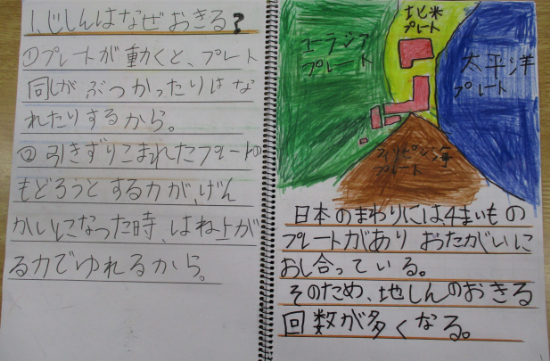 1.じしんはなぜおきる?
①プレートが動くと、プレート
同しがぶつかったりはな
れたりするから。
②引きずりこまれたプレートの
もどろうとする力が、げん
かいになった時、はね上が
る力でゆれるから。
北米
プレート
ユーラシア
プレート
太平洋
プレート
フィリピン海
プレート
日本のまわりには、4まいもの
プレートがあり おたがいに
おし合っている。
そのため、地しんのおきる
回数が多くなる。